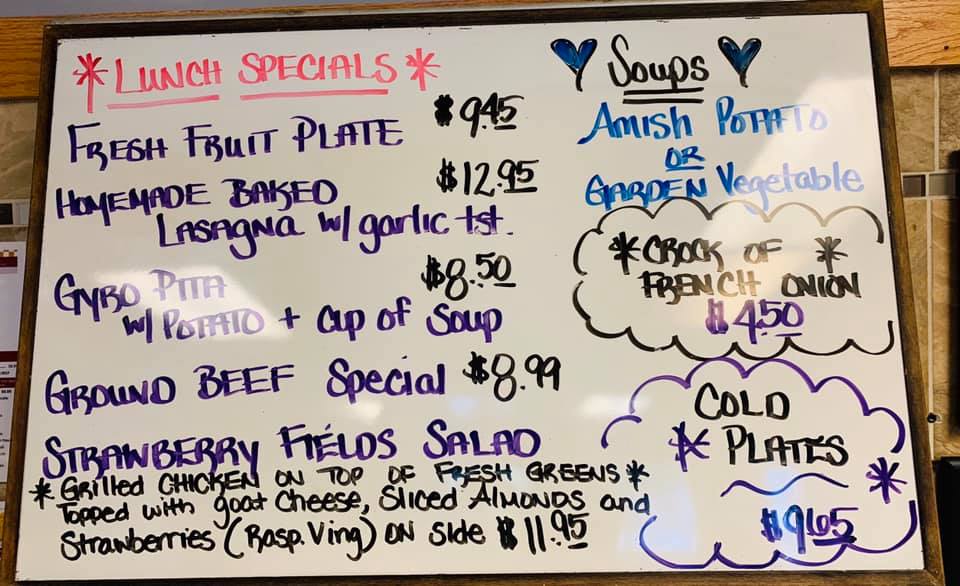 * LUNCH SPECIALS *
FRESH FRUIT PLATE $9.45
HOMEMADE BAKED $12.95
LASAGNA w/ garlic tst.
GYRO PITA $8.50
w/ POTATO + Cup of Soup
GROUND BEEF Special $8.99
STRAWBERRY FIELDS SALAD
* Grilled CHICKEN ON TOP OF FRESH GREENS *
Topped with goat Cheese, Sliced ALMONDS and
Strawberries (Rasp. Ving) ON Side $11.95
Soups
Amish POTATO
OR
GARDEN Vegetable
* CROCK OF *
FRENCH ONION
$4.50
COLD
* PLATES *
$9.65